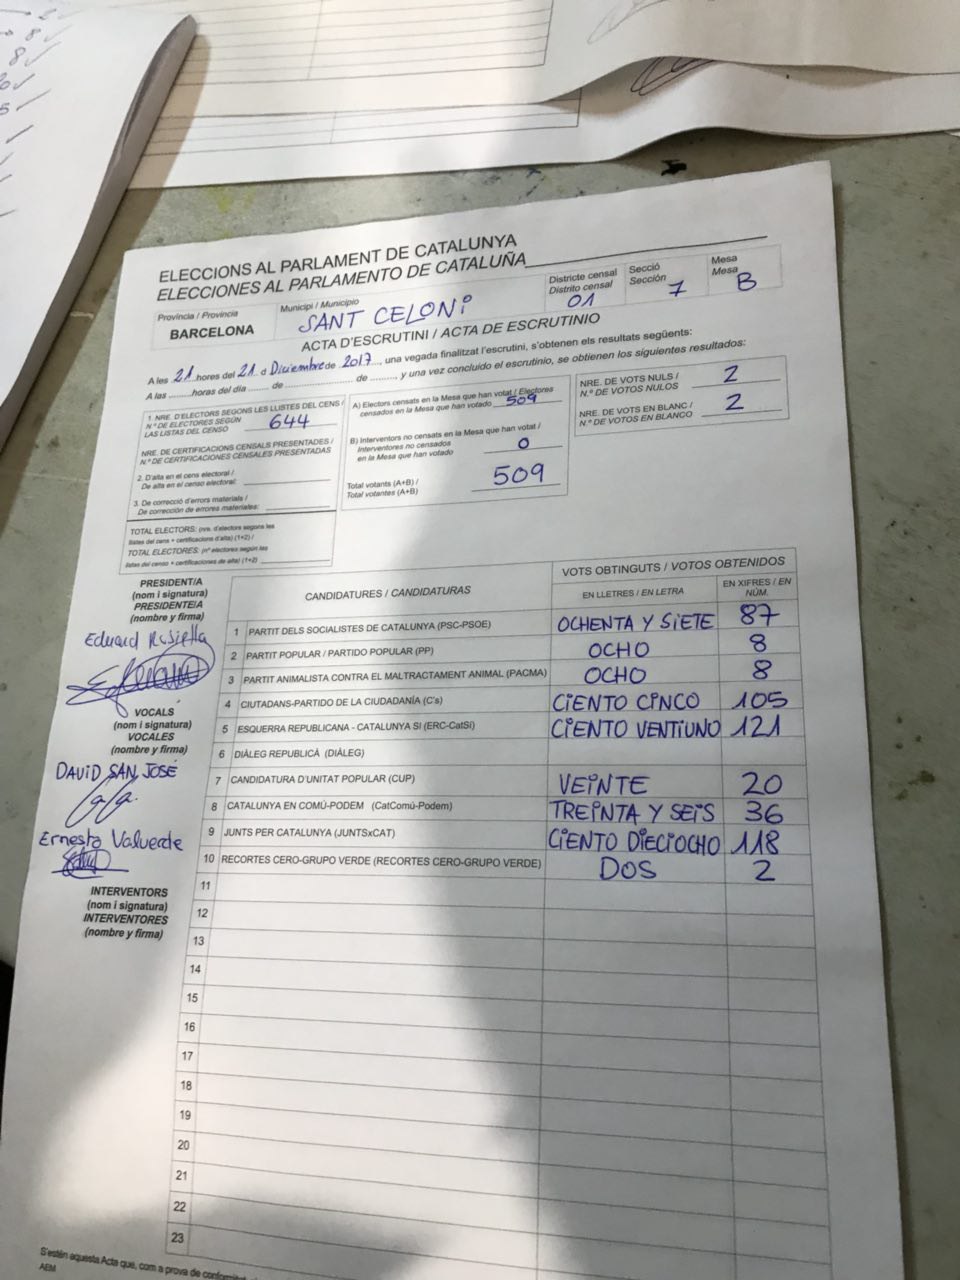 2
8
8
20
5
ELECCIONS AL PARLAMENT DE CATALUNYA
ELECCIONES AL PARLAMENTO DE CATALUÑA
Província / Provincia
BARCELONA
Municipi / Municipio
SANT CELONI
Districte censal
Distrito censal
01
Secció
Sección
7
Mesa
Mesa
B
ACTA D'ESCRUTINI / ACTA DE ESCRUTINIO
A les 21 hores del 21 d Diciembre de 2017, una vegada finalitzat l'escrutini, s'obtenen els resultats següents:
A las ........ horas del día ....... de .................... de ........, y una vez concluido el escrutinio, se obtienen los siguientes resultados:
1. NRE. D'ELECTORS SEGONS LES LLISTES DEL CENS /
N.º DE ELECTORES SEGÚN
LAS LISTAS DEL CENSO
644
NRE. DE CERTIFICACIONS CENSALS PRESENTADES /
N.º DE CERTIFICACIONES CENSALES PRESENTADAS
2. D'alta en el cens electoral /
De alta en el censo electoral:
3. De correcció d'errors materials /
De corrección de errores materiales:
TOTAL ELECTORS: (nre. d'electors segons les
llistes del cens + certificacions d'alta) (1+2) /
TOTAL ELECTORES: (nº electores según las
listas del censo + certificaciones de alta) (1+2)
A) Electors censats en la Mesa que han votat / Electores
censados en la Mesa que han votado
509
B) Interventors no censats en la Mesa que han votat /
Interventores no censados
en la Mesa que han votado
0
Total votants (A+B) /
Total votantes (A+B)
509
NRE. DE VOTS NULS /
N.º DE VOTOS NULOS
2
NRE. DE VOTS EN BLANC /
N.º DE VOTOS EN BLANCO
2
PRESIDENT/A
(nom i signatura)
PRESIDENTE/A
(nombre y firma)
Eduard
VOCALS
(nom i signatura)
VOCALES
(nombre y firma)
DAVID SAN JOSÉ
Ernesto Valverde
INTERVENTORS
(nom i signatura)
INTERVENTORES
(nombre y firma)
CANDIDATURES / CANDIDATURAS
VOTS OBTINGUTS / VOTOS OBTENIDOS
EN LLETRES / EN LETRA
EN XIFRES / EN NÚM.
1 PARTIT DELS SOCIALISTES DE CATALUNYA (PSC-PSOE) OCHENTA Y SIETE 87
2 PARTIT POPULAR / PARTIDO POPULAR (PP) OCHO 8
3 PARTIT ANIMALISTA CONTRA EL MALTRACTAMENT ANIMAL (PACMA) OCHO 8
4 CIUTADANS-PARTIDO DE LA CIUDADANÍA (C's) CIENTO CINCO 105
5 ESQUERRA REPUBLICANA - CATALUNYA SÍ (ERC-CatSí) CIENTO VENTIUNO 121
6 DIÀLEG REPUBLICÀ (DIÀLEG)
7 CANDIDATURA D'UNITAT POPULAR (CUP) VEINTE 20
8 CATALUNYA EN COMÚ-PODEM (CatComú-Podem) TREINTA Y SEIS 36
9 JUNTS PER CATALUNYA (JUNTSxCAT) CIENTO DIECIOCHO 118
10 RECORTES CERO-GRUPO VERDE (RECORTES CERO-GRUPO VERDE) DOS 2
11
12
13
14
15
16
17
18
19
20
21
22
23
S'estén aquesta Acta que, com a prova de
AEM